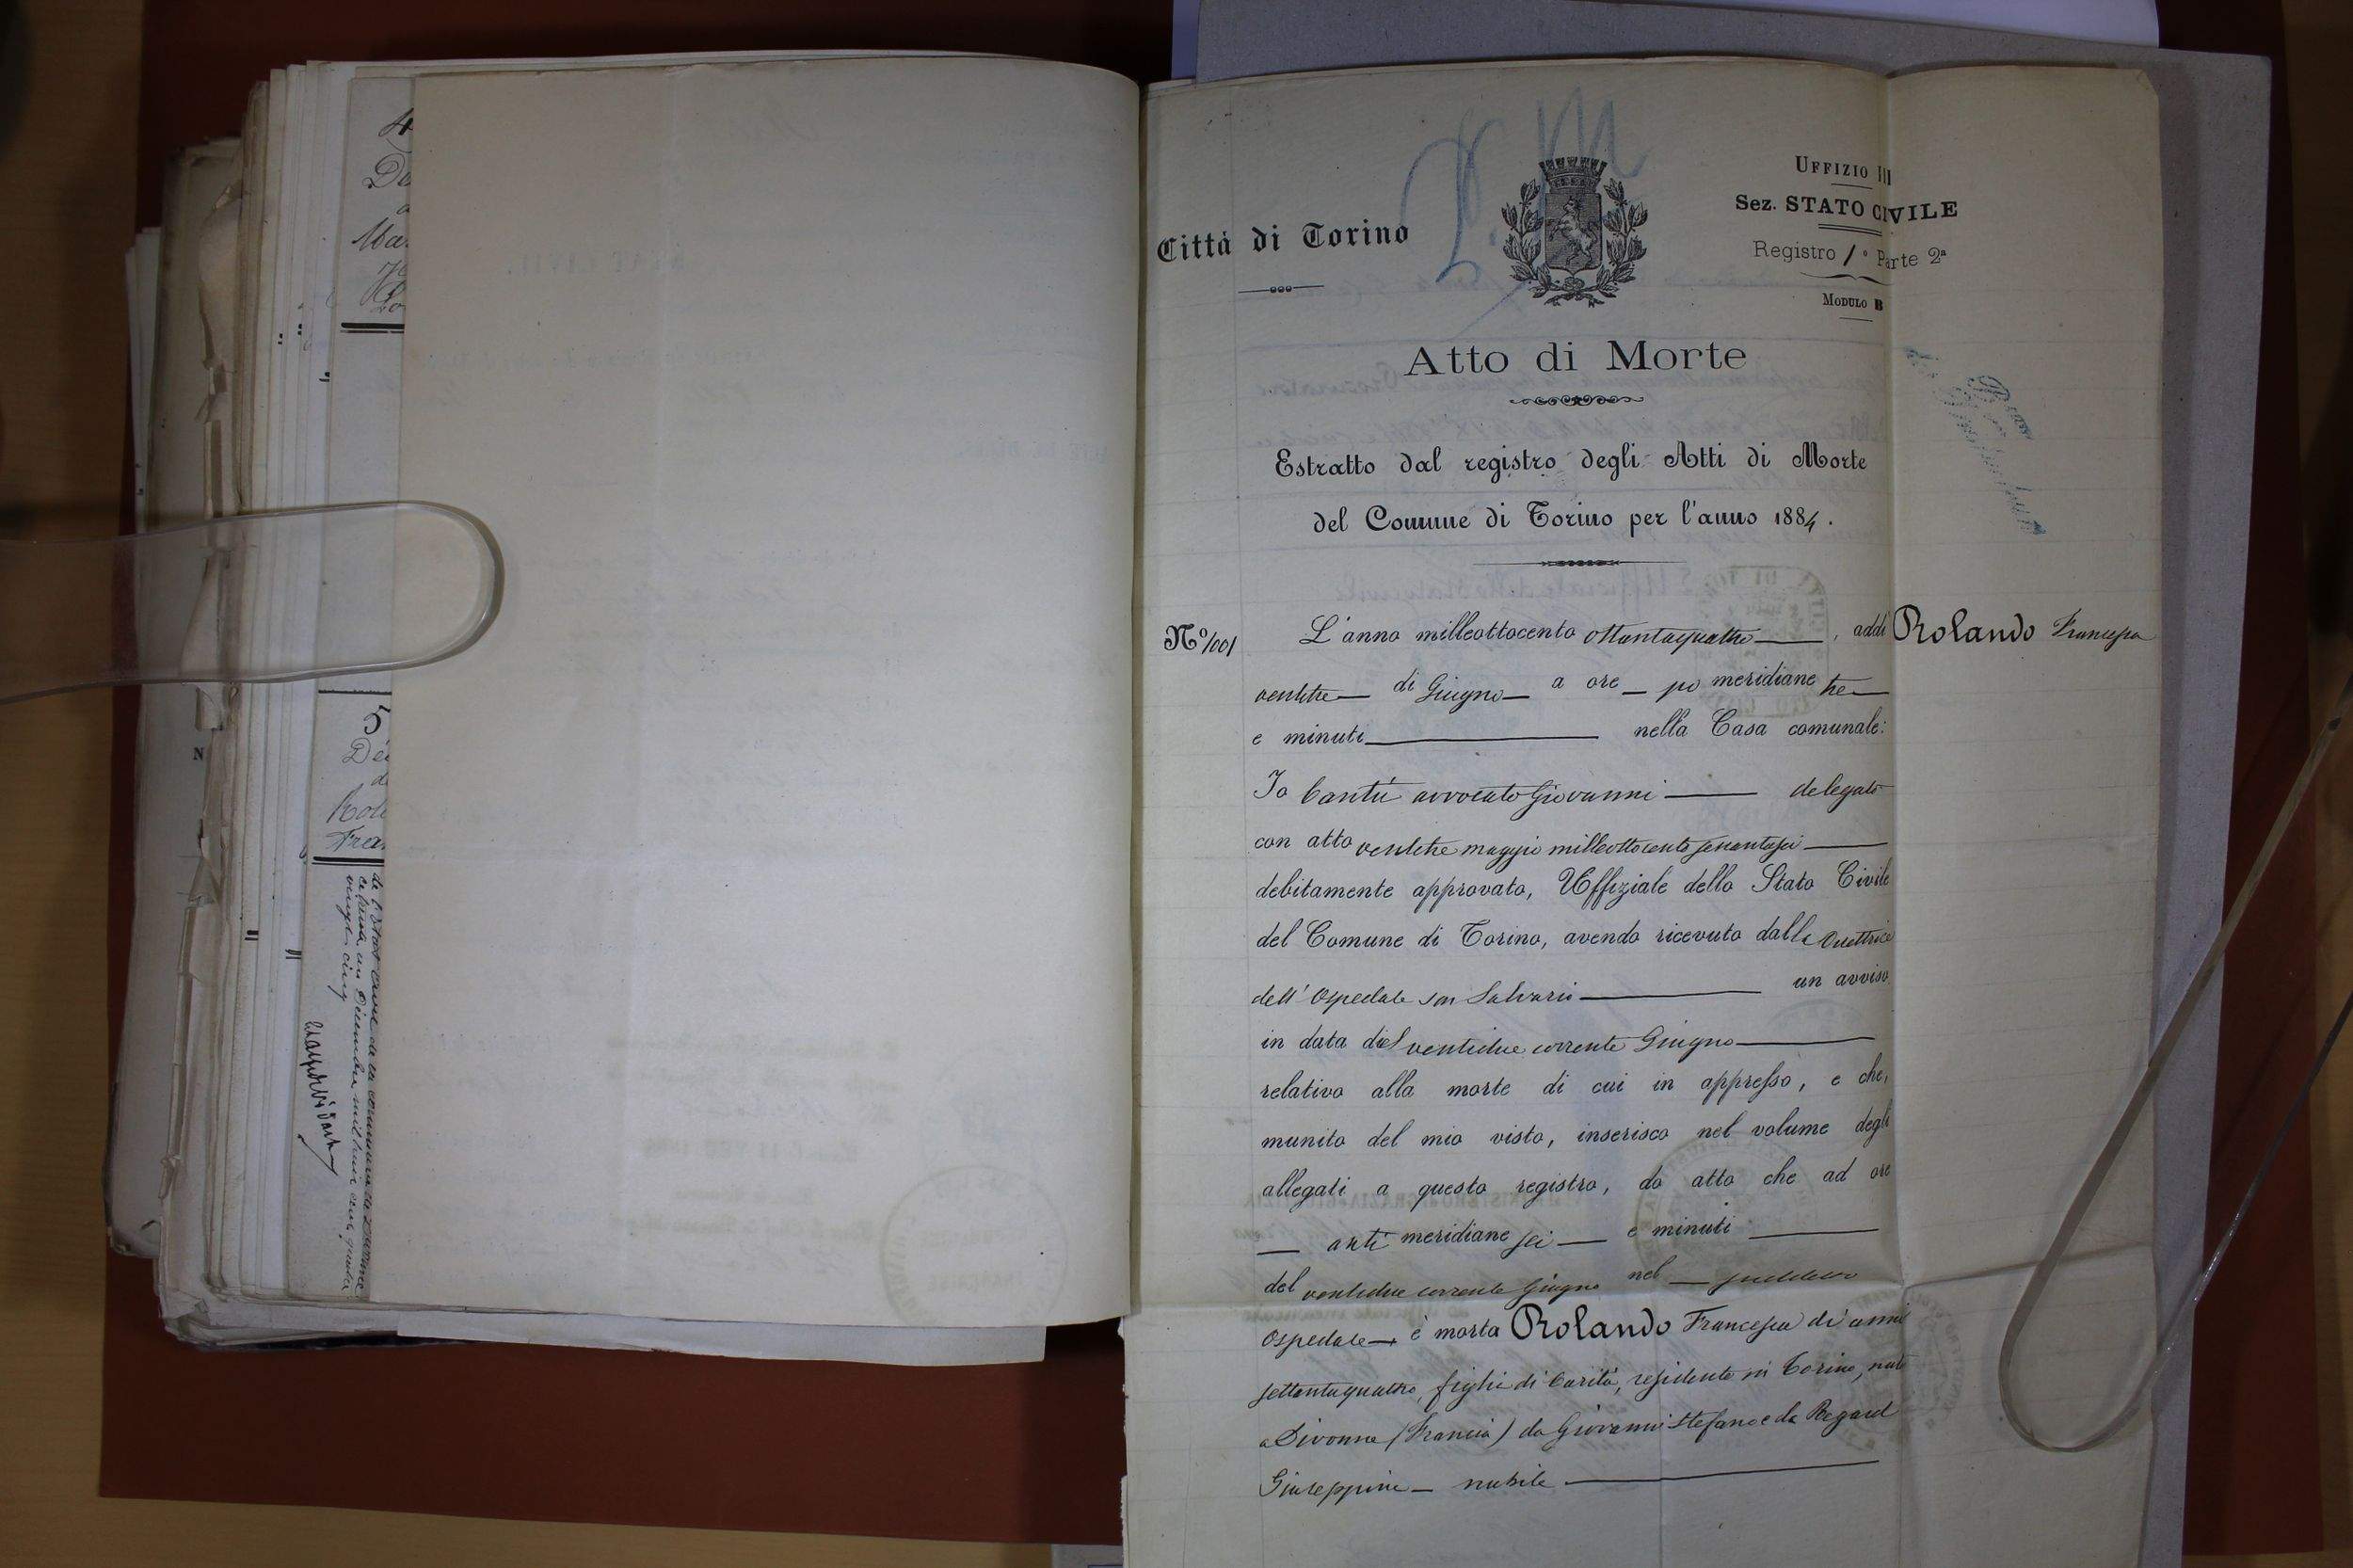 4
De
a
Mar
Lo
5
Déc
de
Rola
Fran
de l'état civil de la commune de Divonne
vingt cinq
Città di Torino
UFFIZIO III
Sez. STATO CIVILE
Registro 1° Parte 2ª
MODULO B
Atto di Morte
Estratto dal registro degli Atti di Morte
del Comune di Torino per l'anno 1884.
N° 1001
L'anno milleottocento ottantaquattro, addì
Rolando Francesca
ventitre di Giugno a ore po meridiane tre
e minuti nella Casa comunale:
Io Cantù avvocato Giovanni delegato
con atto ventitre maggio milleottocento settantasei
debitamente approvato, Uffiziale dello Stato Civile
del Comune di Torino, avendo ricevuto dalla Direttrice
dell'Ospedale San Salvario un avviso
in data del ventidue corrente Giugno
relativo alla morte di cui in appresso, e che,
munito del mio visto, inserisco nel volume degli
allegati a questo registro, do atto che ad ore
anti meridiane sei e minuti
del ventidue corrente Giugno nel predetto
Ospedale è morta Rolando Francesca di anni
settantaquattro, figlia di Carità, residente in Torino, nata
a Divonne (Francia) da Giovanni Stefano e da Regard
Giuseppina nubile